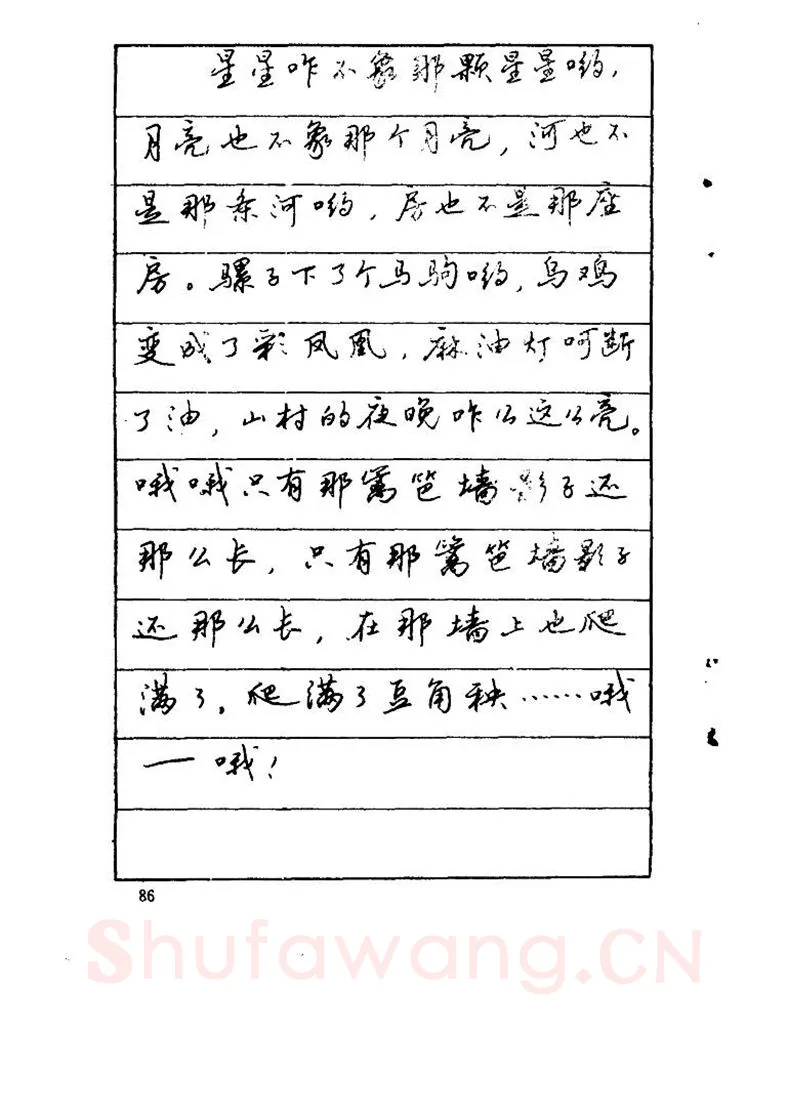 星星咋不象那颗星星哟，
月亮也不象那个月亮，河也不
是那条河哟，房也不是那座
房。骡子下了个马驹哟，乌鸡
变成了彩凤凰，麻油灯呵断
了油，山村的夜晚咋么这么亮。
哦哦只有那篱笆墙影子还
那么长，只有那篱笆墙影子
还那么长，在那墙上也爬
满了，爬满了豆角秧……哦
一哦！
86
Shufawang.CN